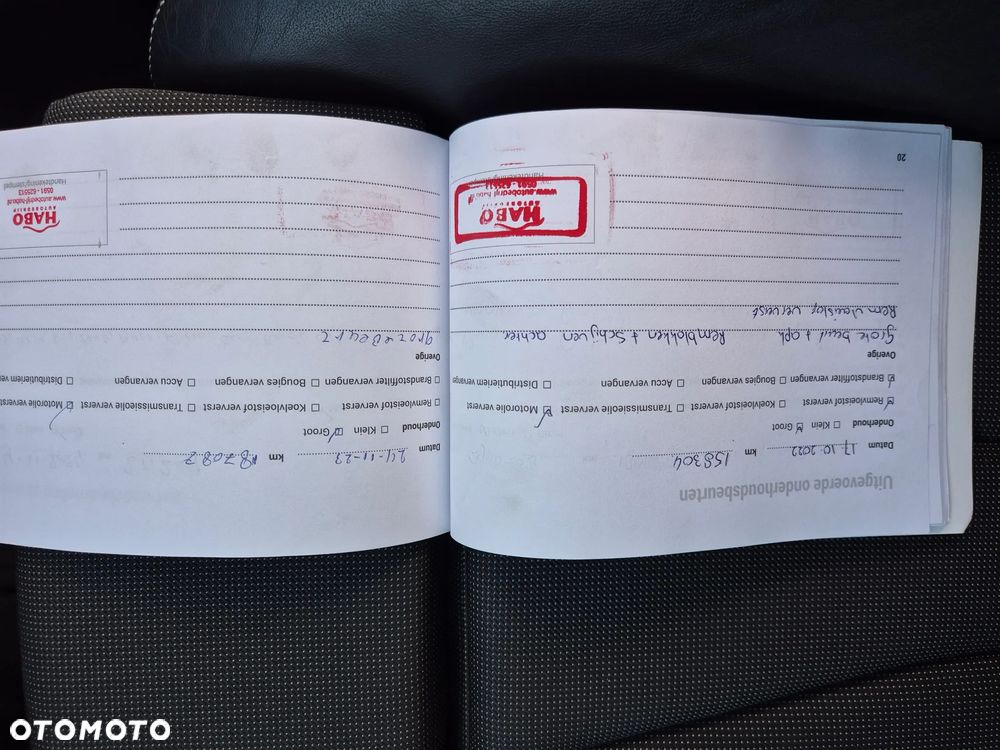 Uitgevoerde onderhoudsbeurten
Datum 17.10.2022 km 158304
Onderhoud □ Klein ☑ Groot
☑ Remvloeistof ververst □ Koelvloeistof ververst □ Transmissieolie ververst ☑ Motorolie ververst
☑ Brandstoffilter vervangen □ Bougies vervangen □ Accu vervangen □ Distributieriem vervange
Overige
Grote beurt + apk Remblokken + Schijven achter
Rem vloeistof ververst
HABO
AUTOBEDRIJF
www.autobedrijf-habo.nl
0591 - 625513
Handtekening/stempel
20
Datum 24-11-23 km 187087
Onderhoud □ Klein ☑ Groot
□ Remvloeistof ververst □ Koelvloeistof ververst □ Transmissieolie ververst ☑ Motorolie ververst
□ Brandstoffilter vervangen □ Bougies vervangen □ Accu vervangen □ Distributieriem ver
Overige
HABO
AUTOBEDRIJF
www.autobedrijf-habo.nl
0591 - 625513
Handtekening/stempel
OTOMOTO